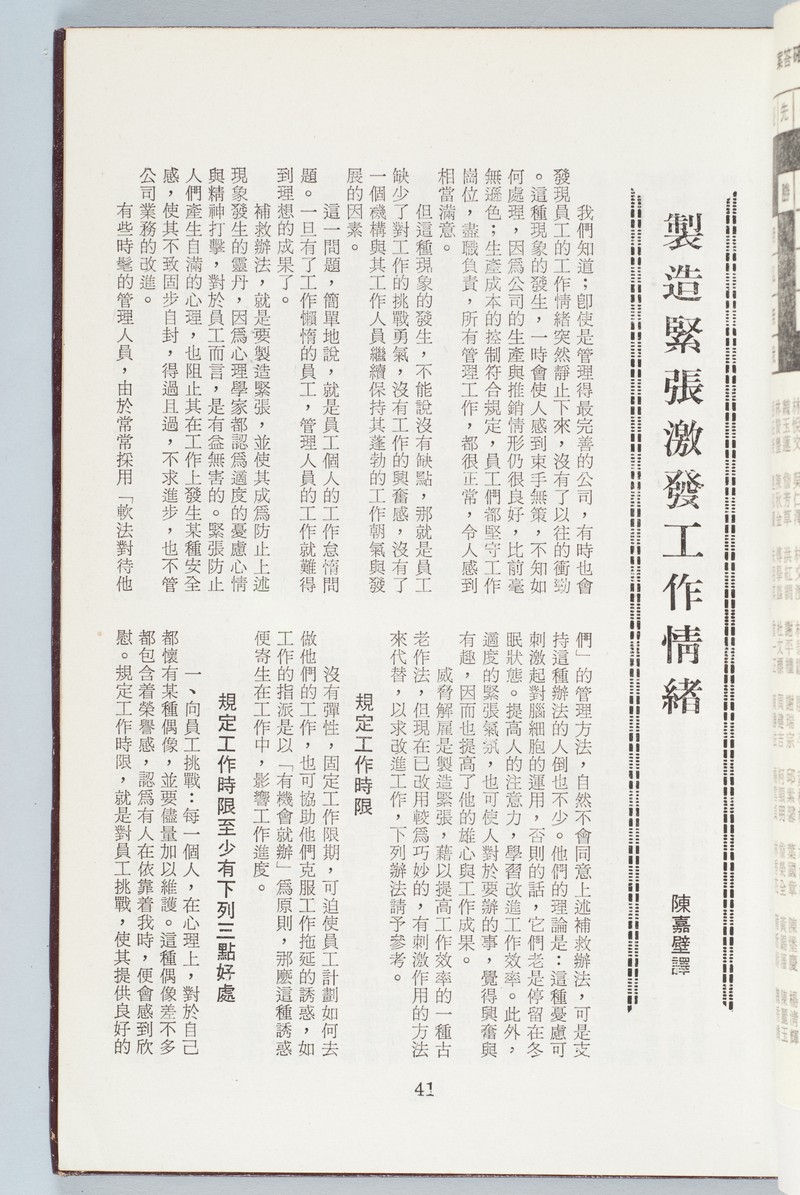 製造緊張激發工作情緒
陳嘉壁譯
我們知道；卽使是管理得最完善的公司，有時也會
發現員工的工作情緒突然靜止下來，沒有了以往的衝勁
。這種現象的發生，一時會使人感到束手無策，不知如
何處理，因爲公司的生產與推銷情形仍很良好，比前毫
無遜色；生產成本的控制符合規定，員工們都堅守工作
崗位，盡職負責，所有管理工作，都很正常，令人感到
相當滿意。
但這種現象的發生，不能說沒有缺點，那就是員工
缺少了對工作的挑戰勇氣，沒有工作的興奮感，沒有了
一個機構與其工作人員繼續保持其蓬勃的工作朝氣與發
展的因素。
這一問題，簡單地說，就是員工個人的工作怠惰問
題。一旦有了工作懶惰的員工，管理人員的工作就難得
到理想的成果了。
補救辦法，就是要製造緊張，並使其成爲防止上述
現象發生的靈丹，因爲心理學家都認爲適度的憂慮心情
與精神打擊，對於員工而言，是有益無害的。緊張防止
人們產生自滿的心理，也阻止其在工作上發生某種安全
感，使其不致固步自封，得過且過，不求進步，也不管
公司業務的改進。
有些時髦的管理人員，由於常常採用「軟法對待他
們」的管理方法，自然不會同意上述補救辦法，可是支
持這種辦法的人倒也不少。他們的理論是：這種憂慮可
刺激起對腦細胞的運用，否則的話，它們老是停留在冬
眠狀態。提高人的注意力，學習改進工作效率。此外，
適度的緊張氣氛，也可使人對於要辦的事，覺得興奮與
有趣，因而也提高了他的雄心與工作成果。
威脅解雇是製造緊張，藉以提高工作效率的一種古
老作法，但現在已改用較爲巧妙的，有刺激作用的方法
來代替，以求改進工作，下列辦法請予參考。
規定工作時限
沒有彈性，固定工作限期，可迫使員工計劃如何去
做他們的工作，也可協助他們克服工作拖延的誘惑，如
工作的指派是以「有機會就辦」爲原則，那麼這種誘惑
便寄生在工作中，影響工作進度。
規定工作時限至少有下列三點好處
一、向員工挑戰：每一個人，在心理上，對於自己
都懷有某種偶像，並要儘量加以維護。這種偶像差不多
都包含着榮譽感，認爲有人在依靠着我時，便會感到欣
慰。規定工作時限，就是對員工挑戰，使其提供良好的
41